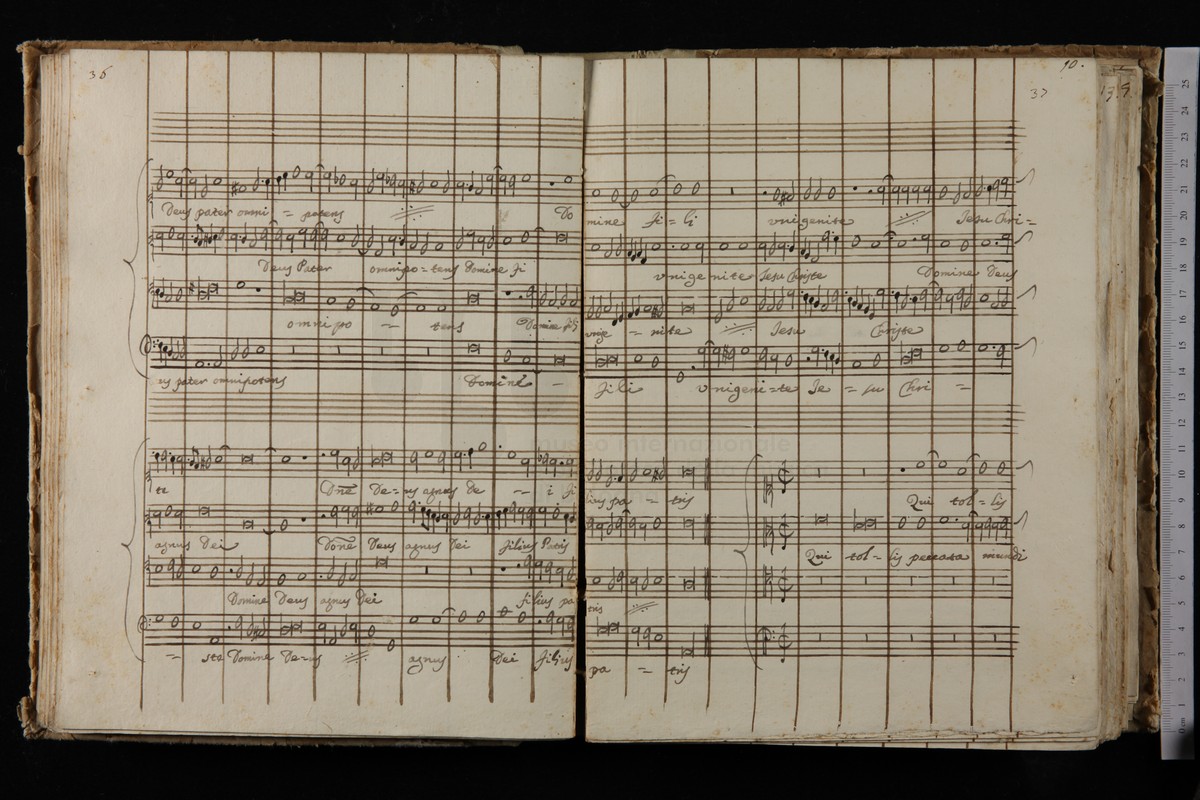 36
10.
37
Deus pater omni = potens Do
mine Fi = li vnigenite Jesu Chri =
Deus Pater omnipo = tens Domine Fi
vnigenite Jesu Christe Domine Deus
omnipo — tens Domine fili
vnige = nite Jesu Christe
us pater omnipotens Domine —
Fili vnigeni = te Je = su Chri —
Dne De = us agnus De — — i Fi
lius pa — tris Qui tol = lis
agnus Dei Done Deus agnus Dei filius Patris
Qui tol = lis peccata mundi
Domine Deus agnus Dei filius pa
tris
= ste Domine De = us agnus Dei Filius
pa — tris
museo internazionale